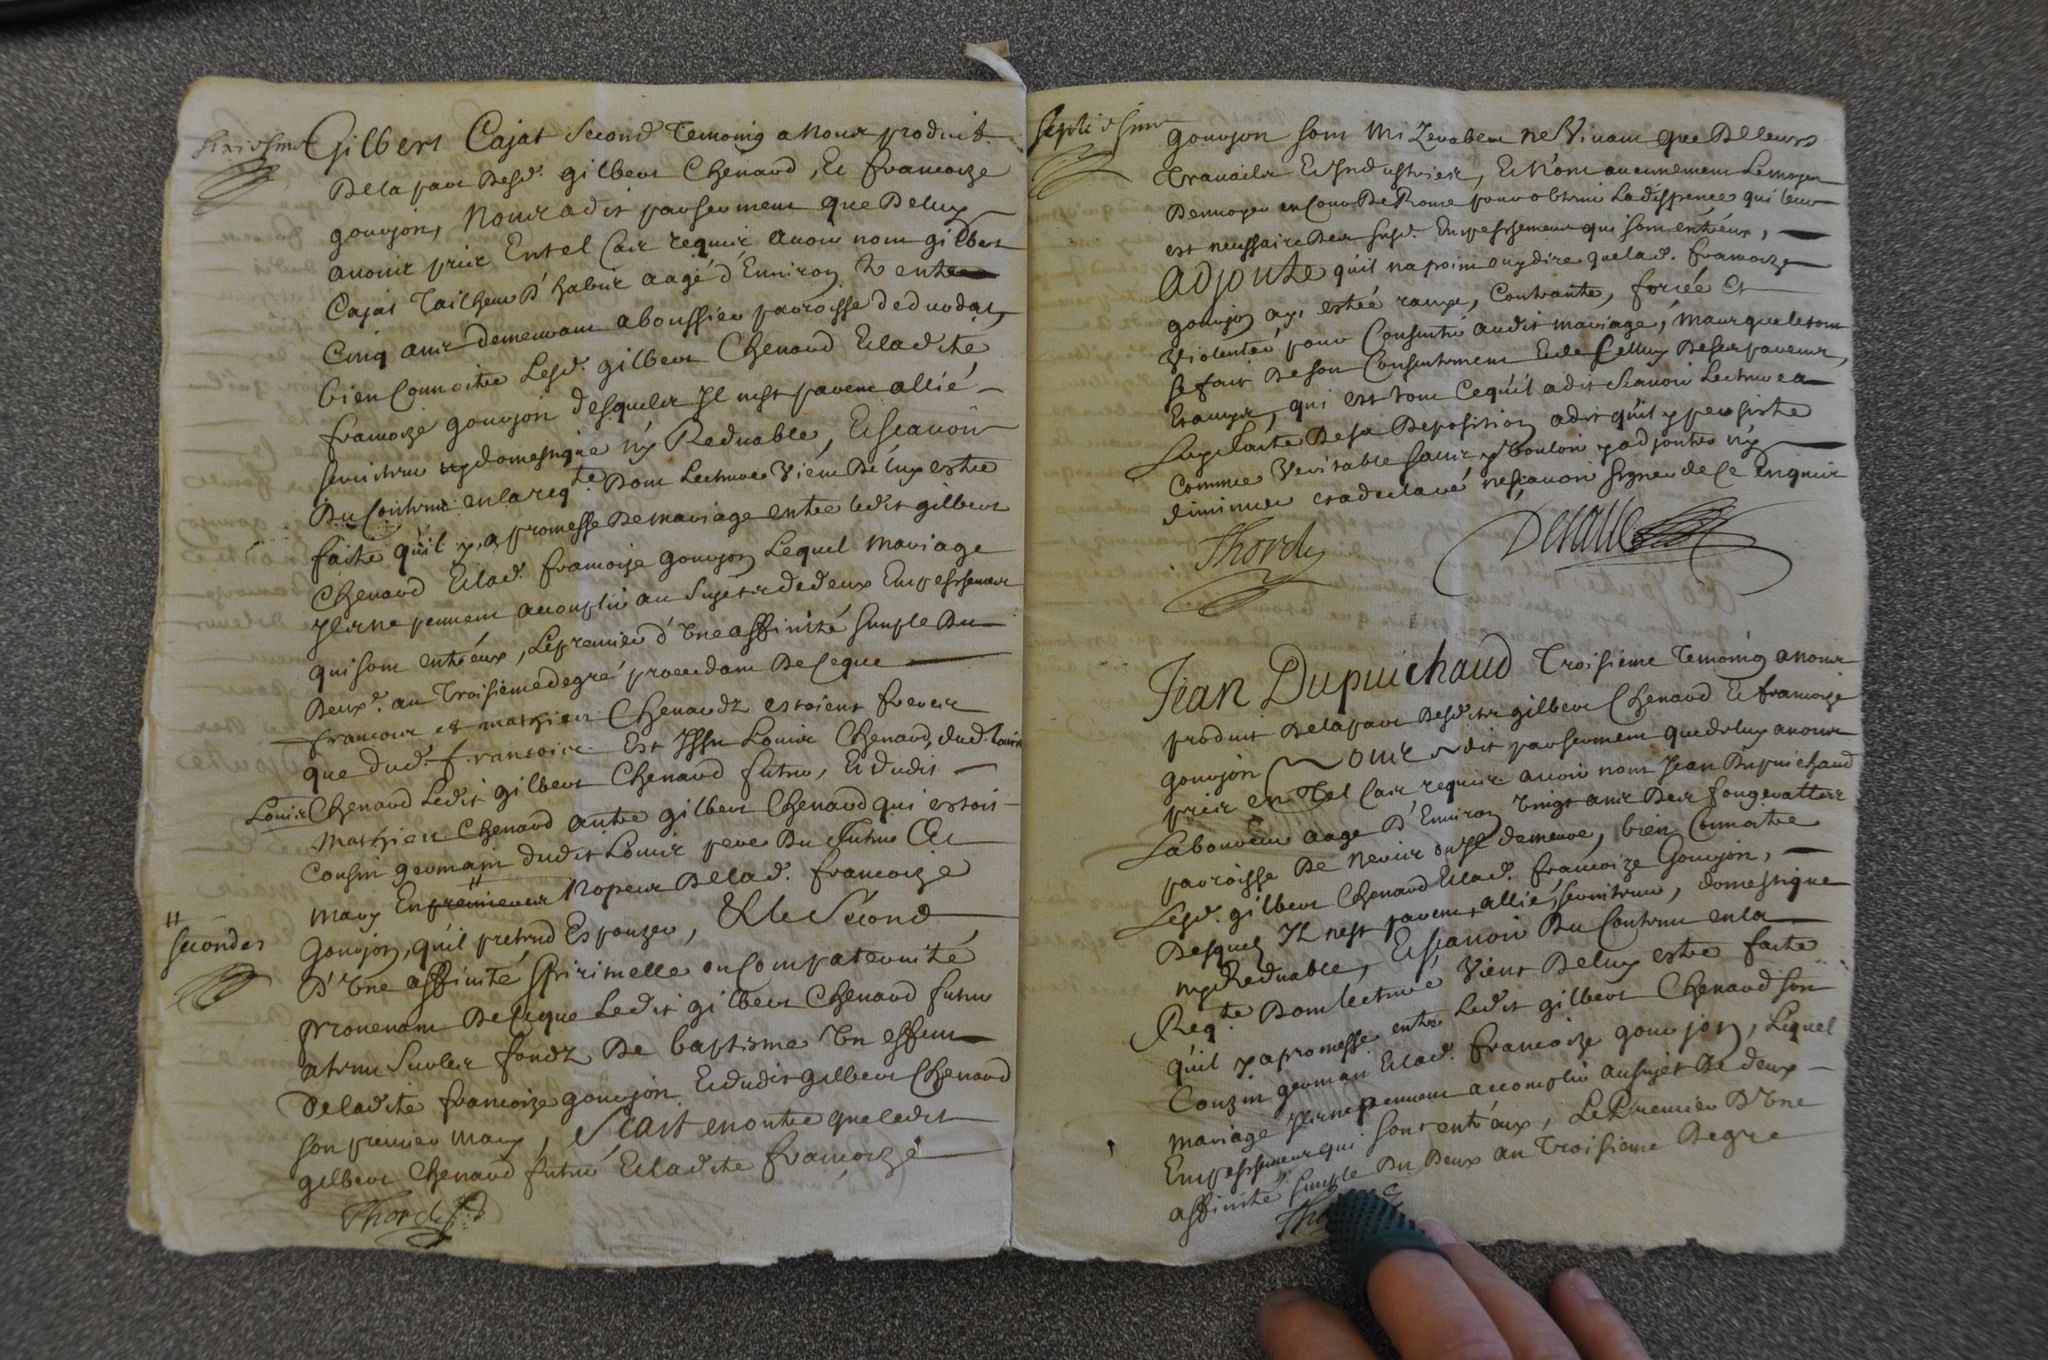 sixiesme
Gilbert Cajat second temoing a nous produict
de la part desd. gilbert Chenaud, et francoize
gouvjon, Nous a dit par serment que de luy
avons pris en tel cas requis avoir nom gilbert
Cajat tailheur d'habits aagé d'environ trente
cinq ans demeurant a boussieu parroisse de durdat,
bien connoitre lesd. gilbert Chenaud et ladite
francoize gouvjon desquels Il nest parent allié
serviteur ny domestique ny Redevable, Et scavoir
du contenu en la reqte. dont lecture vient de luy estre
faite qu'il y a promesse de mariage entre ledit gilbert
Chenaud et lad. francoize gouvjon lequel mariage
Ils ne peuvent accomplir au sujet de deux Empeschemens
qui sont entreux, le premier d'une affinité simple du
deux. au troisieme degré procedant de ce que
francois et mathieu Chenaudz estoient freres
que dud. francois Est Issu Louis Chenaud, dud. Louis
Louis Chenaud ledit gilbert Chenaud futur, et dudit
mathieu Chenaud autre gilbert Chenaud qui estoit
cousin germain dudit Louis pere du futur et
mary En premieres Nopces de lad. francoize
secondes
gouvjon, qu'il pretend Espouzer, Et le second
d'une affinité spirituelle ou compaternité
provenant de ce que ledit gilbert Chenaud futur
a tenu sur les fondz de baptisme un enfant
de ladite francoize gouvjon et dudit gilbert Chenaud
son premier mary, scait en outre que ledit
gilbert Chenaud futur et ladite francoize
septiesme
gouvjon sont mizerables ne vivant que de leurs
travails et industries, et n'ont aucunement le moyen
d'envoyer en Cour de Rome pour obtenir la dispence qui leur
est necessaire des susd. Empeschemens qui sont entreux,
adjoute qu'il na point ouy dire que lad. francoize
gouvjon aye estée ravye, contrainte, forcée et
violentée pour consentir audit mariage, mais que le tout
se fait de son consentement et de celluy de ses parens,
et amys, qui est tout ce qu'il a dit scavoir lecture a
luy faite de sa deposition a dit qu'il y persiste
comme veritable sans y vouloir y adjouter ny
diminuer et a declaré ne scavoir signer de ce enquis
Jean Dupuichaud troisieme temoing a nous
produit de la part desdits gilbert Chenaud et francoize
gouvjon Nous a dit par serment que de luy avons
pris en tel cas requis avoir nom Jean Dupuichaud
Laboureur aage d'environ vingt ans des fougerattes
parroisse de Neris ou Il demeure, bien connoitre
lesd. gilbert Chenaud et lad. francoize gouvjon,
desquels Il nest parent, allié, serviteur, domestique
ny Redevable, Et scavoir du contenu en la
Reqte. dont lecture vient de luy estre faite
qu'il y a promesse entre ledit gilbert Chenaud son
couzin german et lad. francoize gouvjon, lequel
mariage Ils ne peuvent accomplir au sujet de deux
Empeschemens qui sont entreux, le Premier d'une
affinité simple du deux au troisieme degre